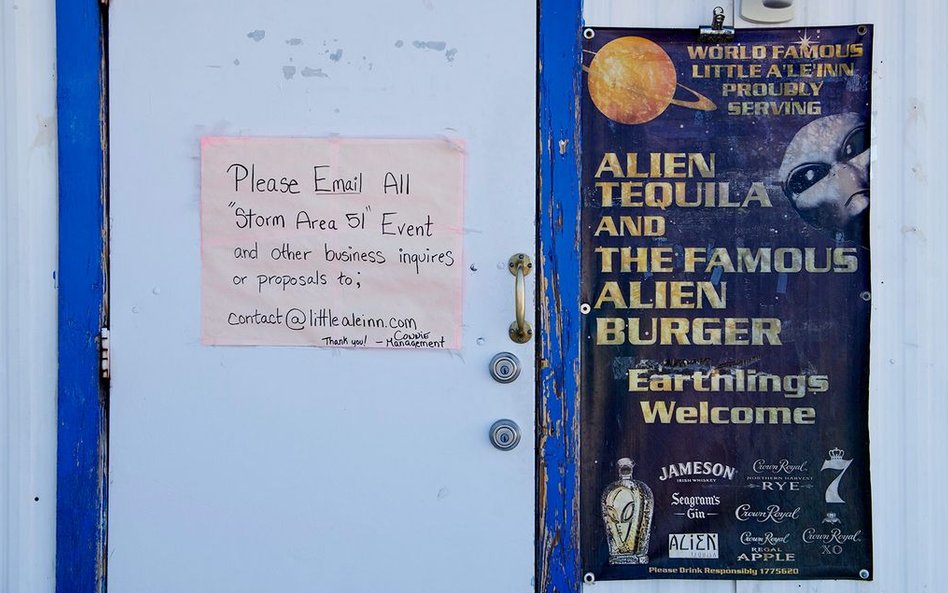 Please Email All
"Storm Area 51" Event
and other business inquires
or proposals to;
contact@littlealeinn.com
Thank you! - Connie
Management
WORLD FAMOUS
LITTLE A'LE'INN
PROUDLY
SERVING
ALIEN
TEQUILA
AND
THE FAMOUS
ALIEN
BURGER
Earthlings
Welcome
JAMESON
IRISH WHISKEY
Seagram's
Gin
ALIEN
TEQUILA
Crown Royal
NORTHERN HARVEST
RYE
7
Crown Royal
Crown Royal
REGAL
APPLE
Crown Royal
XO
Please Drink Responsibly 1775620